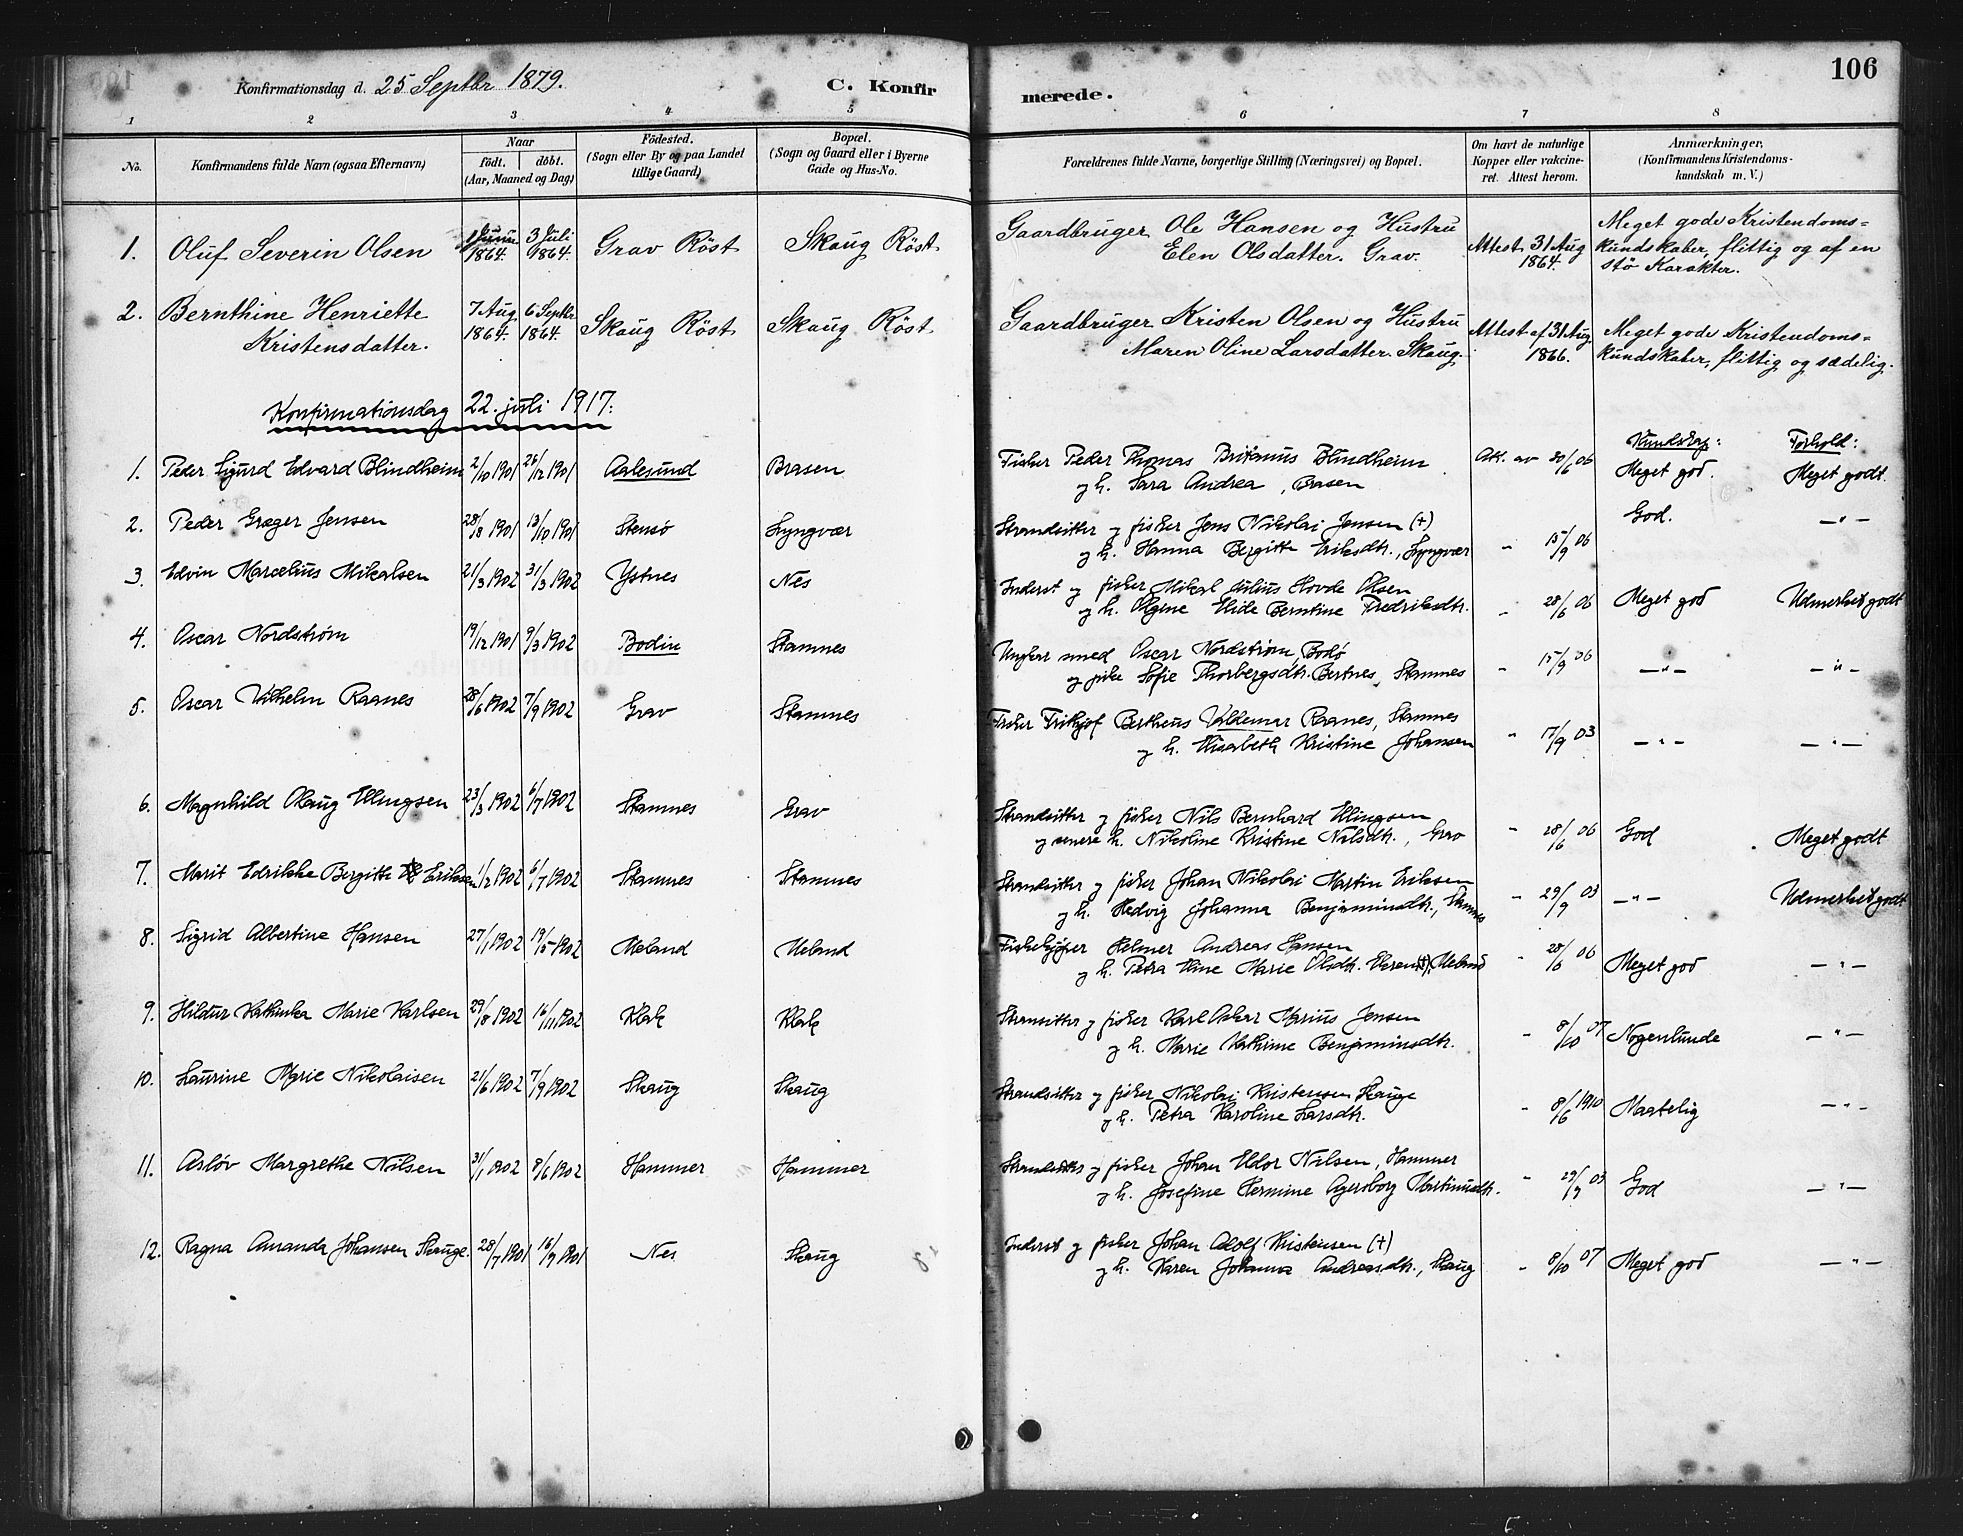 106
Konfirmationsdag d. 25 Septbr 1879. C. Konfirmerede.
1 2 3 4 5 6 7 8
No. Konfirmandens fulde Navn (ogsaa Efternavn) Naar født. døbt. (Aar, Maaned og Dag) Fødested. (Sogn eller By og paa Landet tillige Gaard) Bopæl. (Sogn og Gaard eller i Byerne Gade og Hus-No. Forældrenes fulde Navne, borgerlige Stilling (Næringsvei) og Bopæl. Om havt de naturlige Kopper eller vakcineret. Attest herom. Anmerkninger, (Konfirmandens Kristendomskundskab m. V.)
1. Oluf Severin Olsen 1864. 3 Juli 1864. Grav Röst Skaug Röst Gaardbruger Ole Hansen og Hustru Attest 31 Aug Meget gode Kristendoms=
Elen Olsdatter. Grav. 1864. kundskaber, flittig og af en
stö Karakter.
2. Bernthine Henriette 7 Aug 6 Septbr Skaug Röst Skaug Röst Gaardbruger Kristen Olsen og Hustru Attest af 31 Aug. Meget gode Kristendoms=
Kristensdatter. 1864. 1864. Maren Oline Larsdatter. Skaug. 1866. kundskaber, flittig og sædelig.
Konfirmationsdag 22. juli 1917:
Kundskap: Forhold:
1. Peder Sigurd Edvard Blindheim 2/10 1901 26/12 1901 Aalesund Brasen Fisker Peder Thomas Blindheim Att. av 30/6 06 Meget god. Meget godt.
og h. Sara Andrea, Brasen
2. Peder Græger Jensen 28/8 1901 13/10 1901 Stensø Lyngvær Strandsitter og fisker Jens Nikolai Jensen (+) God. —"—
og h. Hanna Bergitte Eriksdtr., Lyngvær " 15/9 06
3. Edvin Marcelius Mikalsen 21/3 1902 31/3 1902 Ystnes Nes Inderst og fisker Mikal Julius Hovde Olsen
og h. Olgine Elide Berntine Fredriksdtr. " 28/6 06 Meget god Udmerket godt
4. Oscar Nordstrøm 19/12 1901 9/3 1902 Bodin Stamnes Ungkar smed Oscar Nordstrøm, Bodø
og pike Sofie Thorbergsdtr. Bertnes, Stamnes " 15/9 06 —"— —"—
5. Oscar Vilhelm Raanes 28/6 1902 7/9 1902 Grav Stamnes Fisker Frithjof Bertheus Valdemar Raanes, Stamnes
og h. Elisabeth Kristine Johansen " 17/9 03 —"— —"—
6. Magnhild Olaug Ellingsen 23/3 1902 6/7 1902 Stamnes Grav Strandsitter og fisker Nils Bernhard Ellingsen
og senere h. Nikoline Kristine Nilsdtr., Grav " 28/6 06 God Meget godt
7. Marit Edrikke Bergitte Eriksen 1/2 1902 6/7 1902 Stamnes Stamnes Strandsitter og fisker Johan Nikolai Martin Eriksen
og h. Hedvig Johanna Benjaminsdtr., Stamnes " 29/9 03 —"— Udmerket godt
8. Sigrid Albertine Hansen 27/1 1902 19/5 1902 Meland Meland Fiskekjøper Helmer Andreas Hansen
og h. Petra Eline Marie Olsdtr. (+), Meland " 28/6 06 Meget god —"—
9. Hildur Kathinka Marie Karlsen 29/8 1902 16/11 1902 Klak Klak Strandsitter og fisker Karl Oskar Marius Jensen
og h. Marie Kathrine Benjaminsdtr. " 8/10 07 Nogenlunde —"—
10. Laurine Marie Nikolaisen 21/6 1902 7/9 1902 Skaug Skaug Strandsitter og fisker Nikolai Kristensen Skauge
og h. Petra Karoline Larsdtr. " 8/6 1910 Maatelig —"—
11. Asløv Margrethe Nilsen 31/1 1902 8/6 1902 Hammer Hammer Strandsitter og fisker Johan Eldor Nilsen, Hammer
og h. Josefine Hermine Agersborg Martinusdtr. " 29/9 03 God —"—
12. Ragna Amanda Johansen Skauge. 28/7 1901 16/9 1901 Nes Skaug Inderst og fisker Johan Adolf Kristensen (+)
og h. Karen Johanna Andreasdtr., Skaug " 8/10 07 Meget god —"—